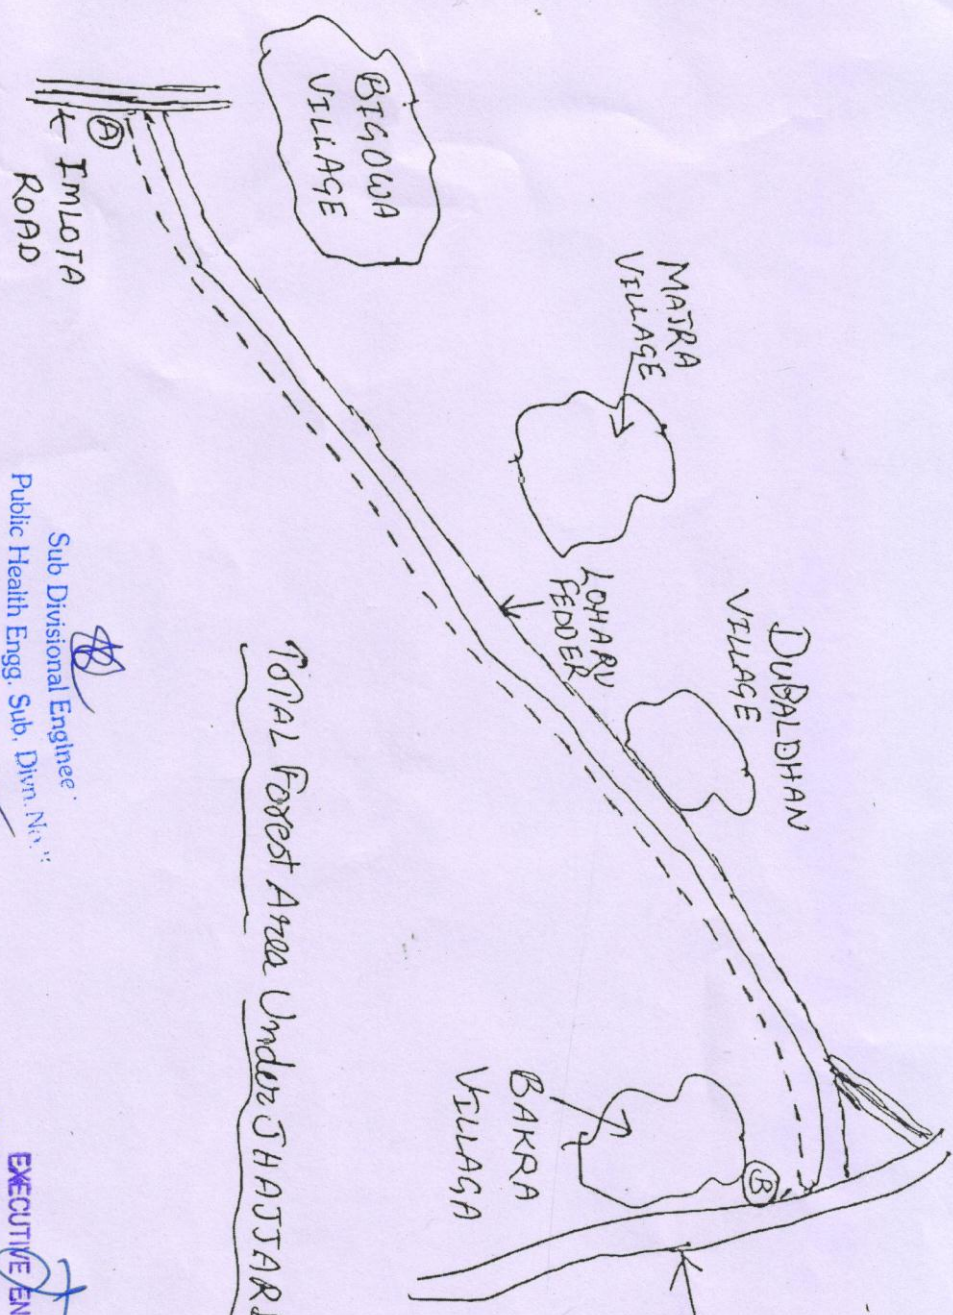 BIGOWA
VILLAGE
MAJRA
VILLAGE
DUBALDHAN
VILLAGE
LOHARU
FEDDER
A
IMLOTA
ROAD
BAKRA
VILLAGA
B
TOTAL Forest Area Under JHAJJAR
Sub Divisional Engineer
Public Health Engg. Sub. Divn. No.
EXECUTIVE EN